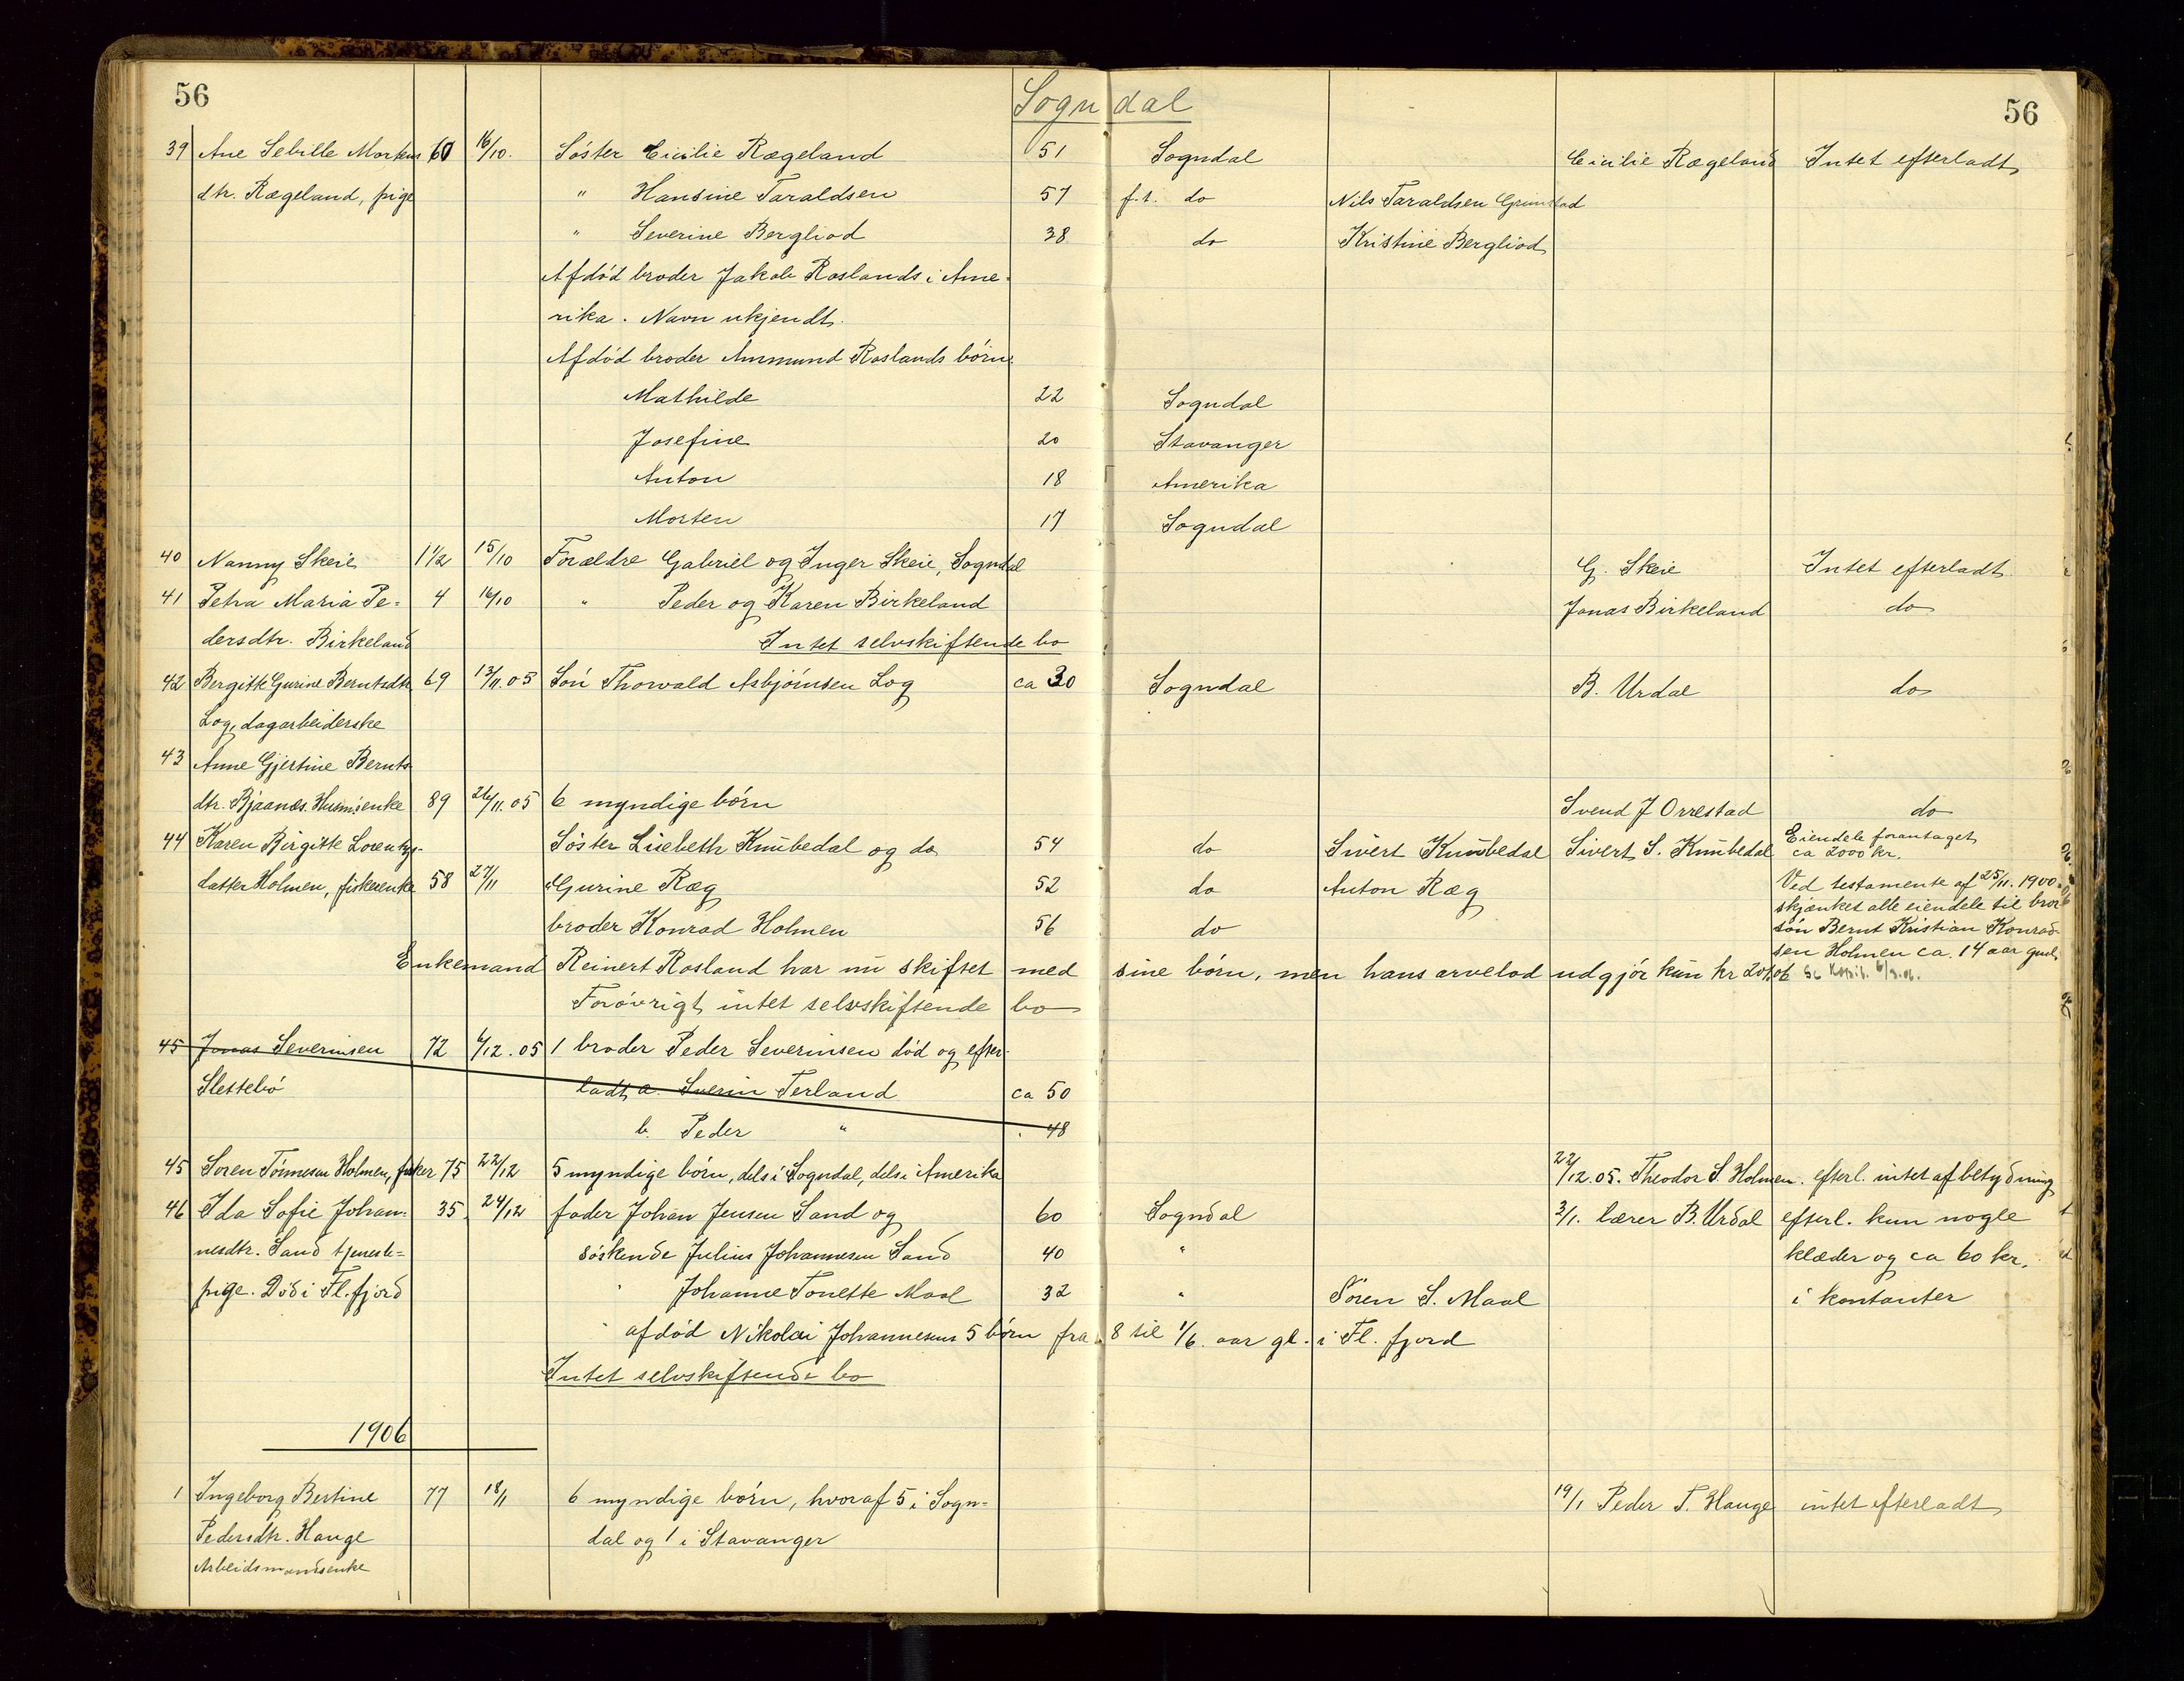 56
Sogndal
56
39 Ane Sebille Mortens 60 16/10. Söster Cicilie Rægeland 51 Sogndal Cicilie Rægeland Intet efterladt
dtr. Rægeland, pige " Hansine Taraldsen 57 f.t. do Nils Taraldsen Grimstad
" Severine Bergliod 38 do Kristine Bergliod
Afdöd broder Jakob Roslands i Ame-
rika. Navn ukjendt.
Afdöd broder Ammund Roslands börn:
Mathilde 22 Sogndal
Josefine 20 Stavanger
Anton 18 Amerika
Morten 17 Sogndal
40 Nanny Skeie 1 1/2 15/10 Forældre Gabriel og Inger Skeie, Sogndal G. Skeie Intet efterladt
41 Petra Maria Pe- 4 16/10 " Peder og Karen Birkeland Jonas Birkeland do
dersdtr. Birkeland Intet selvskiftende bo
42 Bergitte Gurine Berntsdtr 69 13/11.05 Sön Thorvald Asbjörnsen Log ca 30 Sogndal B. Urdal do
Log, dagarbeiderske
43 Anne Gjertine Bernts
dtr. Bjaanæs. Husm.enke 89 26/11.05 6 myndige börn Svend J Orrestad do
44 Karen Birgitte Lorentzs- Söster Lisebeth Knubedal og do 54 do Sivert Knubedal Sivert S. Knubedal Eiendele forantaget
ca 2000 kr.
datter Holmen, fiskerenke 58 27/11 Gurine Ræg 52 do Anton Ræg Ved testamente af 25/11. 1900
skjænket alle eiendele til bror
broder Konrad Holmen 56 do sön Bernt Kristian Konrad-
sen Holmen ca. 14 aar gml.
Enkemand Reinert Rosland har nu skiftet med sine börn, men hans arvelod udgjör kun kr
Forövrigt intet selvskiftende bo
45 Jonas Severinsen 72 6/12.05 1 broder Peder Severinsen död og efter-
Slettebö ladt a. Sverin Terland ca 50
b. Peder " " 48
45 Soren Tönnesen Holmen, fisker 75 22/12 5 myndige börn, dels i Sogndal, dels i Amerika 22/12.05. Theodor S. Holmen. efterl. intet af betydning
46 Ida Sofie Johan- 35 24/12 fader Johan Jensen Sand og 60 Sogndal 3/1. lærer B. Urdal efterl. kun nogle
nesdtr. Sand tjeneste- söskende Julius Johannesen Sand 40 " klæder og ca 60 kr.
pige. Död i Fl.fjord " Johanne Tonette Maal 32 " Sören S. Maal i kontanter
" afdöd Nikolai Johannesens 5 börn fra 8 til 1/6. aar gl. i Fl. fjord
Intet selvskiftende bo
1906
1 Ingeborg Bertine 77 18/1 6 myndige börn, hvoraf 5 i Sogn- 19/1 Peder T. Hauge intet efterladt
Pedersdtr. Hauge dal og 1 i Stavanger
Arbeidsmandsenke